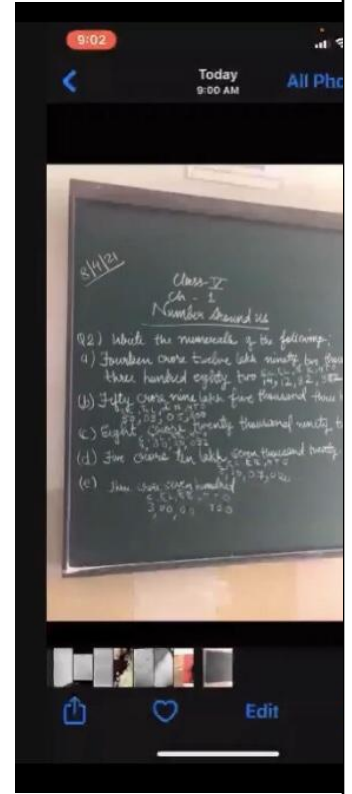 9:02
Today
9:00 AM
All Pho
8/4/21
Class-V
Ch-1
Number Around Us
Q2) Write the numerals of the following:
a) Fourteen crore twelve lakh ninety two thou
three hundred eighty two
(b) Fifty crore nine lakh five thousand three h
(c) Eight crore twenty thousand ninety t
(d) Five crore ten lakh seven thousand twenty
(e) Three crore seven hundred
3,00,00 700
Edit